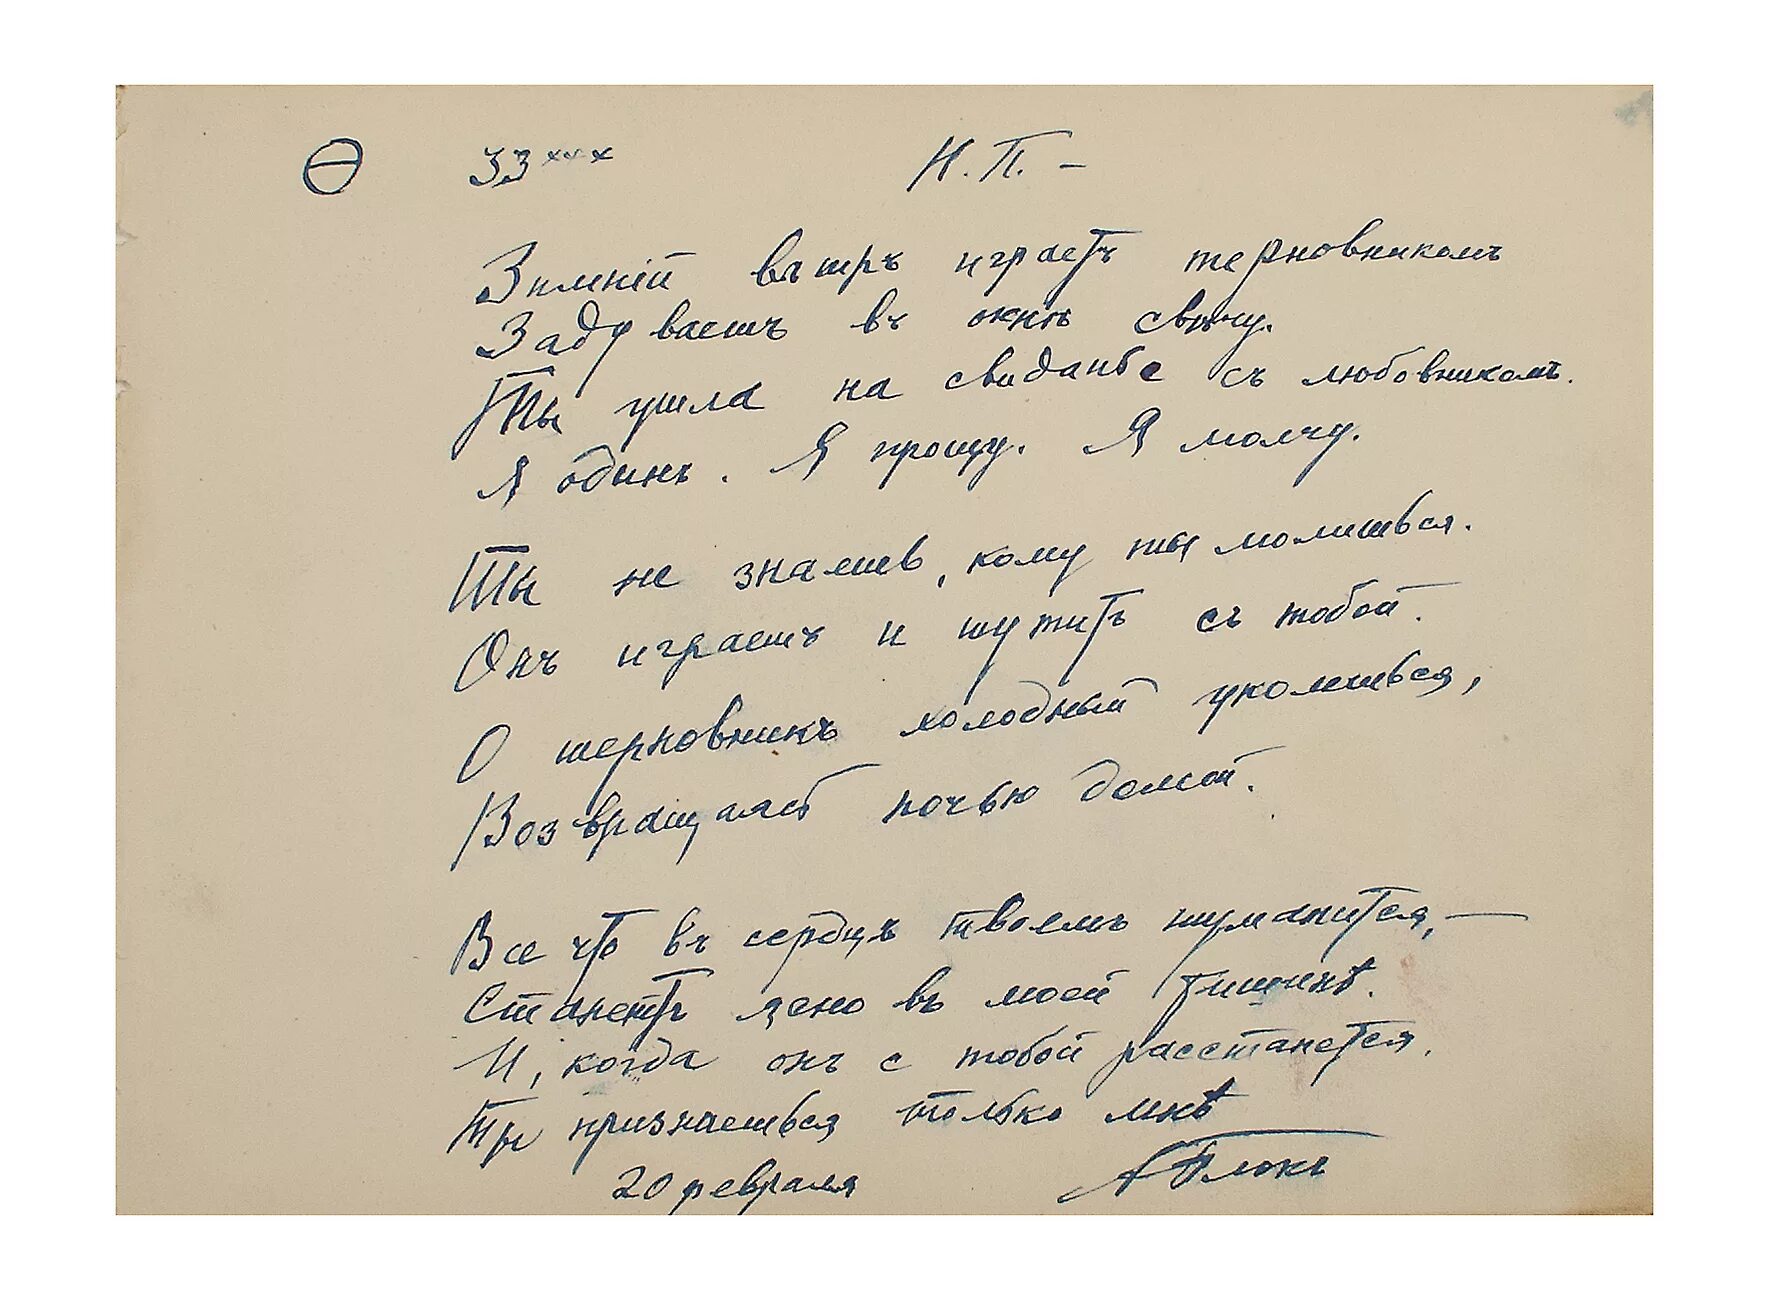 33 ххх Н.П. –
Зимній вѣтръ играетъ терновникомъ
Задуваетъ въ окнѣ свѣчу.
Ты ушла на свиданье съ любовникомъ.
Я одинъ. Я прощу. Я молчу.
Ты не знаешь, кому ты молишься.
Онъ играетъ и шутитъ съ тобой.
О терновникъ холодный уколишься,
Возвращаясь ночью домой.
Все что въ сердцѣ твоемъ туманится, —
Станетъ ясно въ моей тишинѣ.
И, когда онъ с тобой разстанется.
Ты признаешься только мнѣ
20 февраля АБлокъ